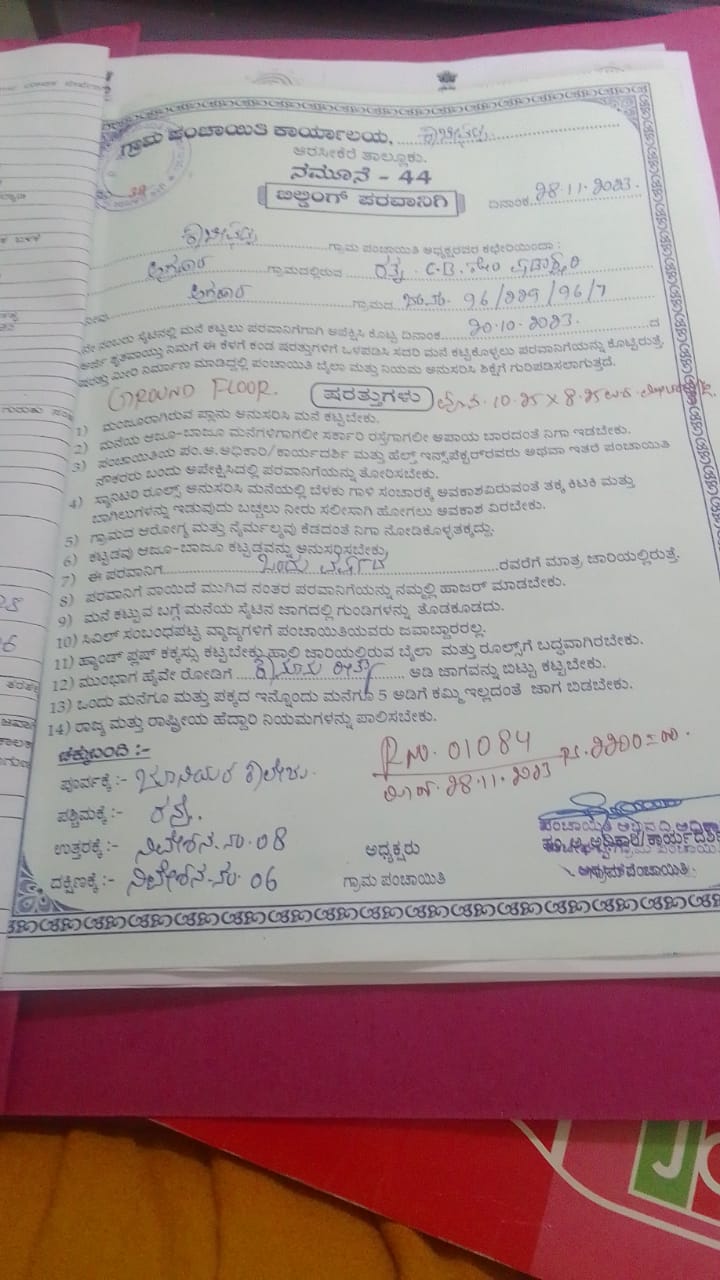 ಗ್ರಾಮ ಪಂಚಾಯಿತಿ ಕಾರ್ಯಾಲಯ,
ಅರಸೀಕೆರೆ ತಾಲ್ಲೂಕು.
ನಮೂನೆ - 44
ಬಿಲ್ಡಿಂಗ್ ಪರವಾನಿಗಿ
ದಿನಾಂಕ 28.11.2023.
ಗ್ರಾಮ ಪಂಚಾಯಿತಿ ಅಧ್ಯಕ್ಷರವರ ಕಛೇರಿಯಿಂದಾ :
ಅಗ್ರಹಾರ ಗ್ರಾಮದಲ್ಲಿರುವ ರತ್ನ C.B.
ಅಗ್ರಹಾರ ಗ್ರಾಮದ 96/229/96/7
ನೀವು 20.10.2023. ದ
ನೇ ನಂಬರು ಸೈಟಿನಲ್ಲಿ ಮನೆ ಕಟ್ಟಲು ಪರವಾನಿಗೆಗಾಗಿ ಅಪೇಕ್ಷಿಸಿ ಕೊಟ್ಟ ದಿನಾಂಕ
ಅರ್ಜಿ ಕೃತವಾಯ್ತು ನಿಮಗೆ ಈ ಕೆಳಗೆ ಕಂಡ ಷರತ್ತುಗಳಿಗೆ ಒಳಪಡಿಸಿ ಸದರಿ ಮನೆ ಕಟ್ಟಿಕೊಳ್ಳಲು ಪರವಾನಿಗೆಯನ್ನು ಕೊಟ್ಟಿರುತ್ತೆ.
ಷರತ್ತು ಮೀರಿ ನಿರ್ಮಾಣ ಮಾಡಿದ್ದಲ್ಲಿ ಪಂಚಾಯಿತಿ ಬೈಲಾ ಮತ್ತು ನಿಯಮ ಅನುಸರಿಸಿ ಶಿಕ್ಷೆಗೆ ಗುರಿಪಡಿಸಲಾಗುತ್ತದೆ.
GROUND FLOOR. ಷರತ್ತುಗಳು 10.25 X 8.25
1) ಮಂಜೂರಾಗಿರುವ ಪ್ಲಾನು ಅನುಸರಿಸಿ ಮನೆ ಕಟ್ಟಬೇಕು.
2) ಮನೆಯ ಆಜೂ-ಬಾಜೂ ಮನೆಗಳಿಗಾಗಲೀ ಸರ್ಕಾರಿ ರಸ್ತೆಗಾಗಲೀ ಅಪಾಯ ಬಾರದಂತೆ ನಿಗಾ ಇಡಬೇಕು.
3) ಪಂಚಾಯಿತಿಯ ಪಂ.ಅ.ಅಧಿಕಾರಿ/ಕಾರ್ಯದರ್ಶಿ ಮತ್ತು ಹೆಲ್ತ್ ಇನ್ಸ್‌ಪೆಕ್ಟರ್‌ರವರು ಅಥವಾ ಇತರೆ ಪಂಚಾಯಿತಿ
ನೌಕರರು ಬಂದು ಅಪೇಕ್ಷಿಸಿದಲ್ಲಿ ಪರವಾನಿಗೆಯನ್ನು ತೋರಿಸಬೇಕು.
4) ಸ್ಯಾನಿಟರಿ ರೂಲ್ಸ್ ಅನುಸರಿಸಿ ಮನೆಯಲ್ಲಿ ಬೆಳಕು ಗಾಳಿ ಸಂಚಾರಕ್ಕೆ ಅವಕಾಶವಿರುವಂತೆ ತಕ್ಕ ಕಿಟಕಿ ಮತ್ತು
ಬಾಗಿಲುಗಳನ್ನು ಇಡುವುದು ಬಚ್ಚಲು ನೀರು ಸಲೀಸಾಗಿ ಹೋಗಲು ಅವಕಾಶ ವಿರಬೇಕು.
5) ಗ್ರಾಮದ ಆರೋಗ್ಯ ಮತ್ತು ನೈರ್ಮಲ್ಯವು ಕೆಡದಂತೆ ನಿಗಾ ನೋಡಿಕೊಳ್ಳತಕ್ಕದ್ದು.
6) ಕಟ್ಟಡವು ಆಜೂ-ಬಾಜೂ ಕಟ್ಟಡವನ್ನು ಅನುಸರಿಸಬೇಕು
7) ಈ ಪರವಾನಿಗೆ ಒಂದು ವರ್ಷದ ರವರೆಗೆ ಮಾತ್ರ ಜಾರಿಯಲ್ಲಿರುತ್ತೆ.
8) ಪರವಾನಿಗೆ ವಾಯಿದೆ ಮುಗಿದ ನಂತರ ಪರವಾನಿಗೆಯನ್ನು ನಮ್ಮಲ್ಲಿ ಹಾಜರ್ ಮಾಡಬೇಕು.
9) ಮನೆ ಕಟ್ಟುವ ಬಗ್ಗೆ ಮನೆಯ ಸೈಟಿನ ಜಾಗದಲ್ಲಿ ಗುಂಡಿಗಳನ್ನು ತೊಡಕೂಡದು.
10) ಸಿವಿಲ್ ಸಂಬಂಧಪಟ್ಟ ವ್ಯಾಜ್ಯಗಳಿಗೆ ಪಂಚಾಯಿತಿಯವರು ಜವಾಬ್ದಾರರಲ್ಲ.
11) ಹ್ಯಾಂಡ್ ಫ್ಲಷ್ ಕಕ್ಕಸ್ಸು ಕಟ್ಟಬೇಕ್ತು ಹಾಲಿ ಜಾರಿಯಲ್ಲಿರುವ ಬೈಲಾ ಮತ್ತು ರೂಲ್ಸ್‌ಗೆ ಬದ್ಧವಾಗಿರಬೇಕು.
12) ಮುಂಭಾಗ ಹೈವೇ ರೋಡಿಗೆ ಅಡಿ ಜಾಗವನ್ನು ಬಿಟ್ಟು ಕಟ್ಟಬೇಕು.
13) ಒಂದು ಮನೆಗೂ ಮತ್ತು ಪಕ್ಕದ ಇನ್ನೊಂದು ಮನೆಗೂ 5 ಅಡಿಗೆ ಕಮ್ಮಿ ಇಲ್ಲದಂತೆ ಜಾಗ ಬಿಡಬೇಕು.
14) ರಾಜ್ಯ ಮತ್ತು ರಾಷ್ಟ್ರೀಯ ಹೆದ್ದಾರಿ ನಿಯಮಗಳನ್ನು ಪಾಲಿಸಬೇಕು.
ಚಕ್ಕುಬಂದಿ :-
RNo. 01084
28.11.2023 ರೂ. 2200=00.
ಪೂರ್ವಕ್ಕೆ :- ಜೂನಿಯರ ಕಾಲೇಜು.
ಪಶ್ಚಿಮಕ್ಕೆ :- ರಸ್ತೆ.
ಉತ್ತರಕ್ಕೆ :- ನಿವೇಶನ.ನಂ.08
ದಕ್ಷಿಣಕ್ಕೆ :- ನಿವೇಶನ.ನಂ.06
ಅಧ್ಯಕ್ಷರು
ಗ್ರಾಮ ಪಂಚಾಯಿತಿ
ಪಂ.ಅ.ಅಧಿಕಾರಿ/ಕಾರ್ಯದರ್ಶಿ
ಗ್ರಾಮ ಪಂಚಾಯಿತಿ